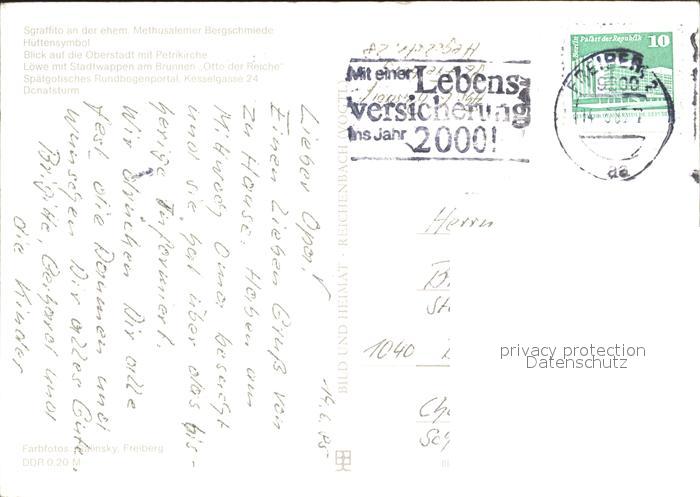 Sgraffito an der ehem. Methusalemer Bergschmiede
Hüttensymbol
Blick auf die Oberstadt mit Petrikirche
Löwe mit Stadtwappen am Brunnen „Otto der Reiche"
Spätgotisches Rundbogenportal, Kesselgasse 24
Donatsturm
Mit einer Lebens-
versicherung
ins Jahr 2000!
Berlin Palast der Republik 10
FREIBERG 2
9200
aa
14.6.85
Lieber Opa!
Einen lieben Gruß von
zu Hause. Haben am
Mittwoch Oma besucht
und sie hat über das bis-
herige informiert.
Wir drücken Dir alle
fest die Daumen und
wünschen Dir alles Gute.
Brigitte, Gerhard und
die Kinder
BILD UND HEIMAT · REICHENBACH (VOGTL
Herrn
1040
privacy protection
Datenschutz
Farbfotos: Kalinsky, Freiberg
DDR 0,20 M